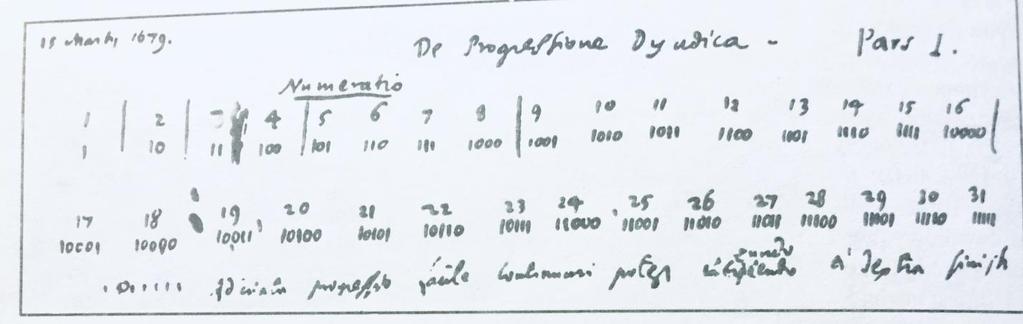 15 Martii, 1679.
De Progressione Dyadica - Pars I.
Numeratio
1 | 2 | 3 4 | 5 6 7 8 | 9 10 11 12 13 14 15 16 |
1 10 11 100 101 110 111 1000 1001 1010 1011 1100 1101 1110 1111 10000
17 18 19 20 21 22 23 24 25 26 27 28 29 30 31
10001 10010 10011 10100 10101 10110 10111 11000 11001 11010 11011 11100 11101 11110 11111
progressio facile continuari potest